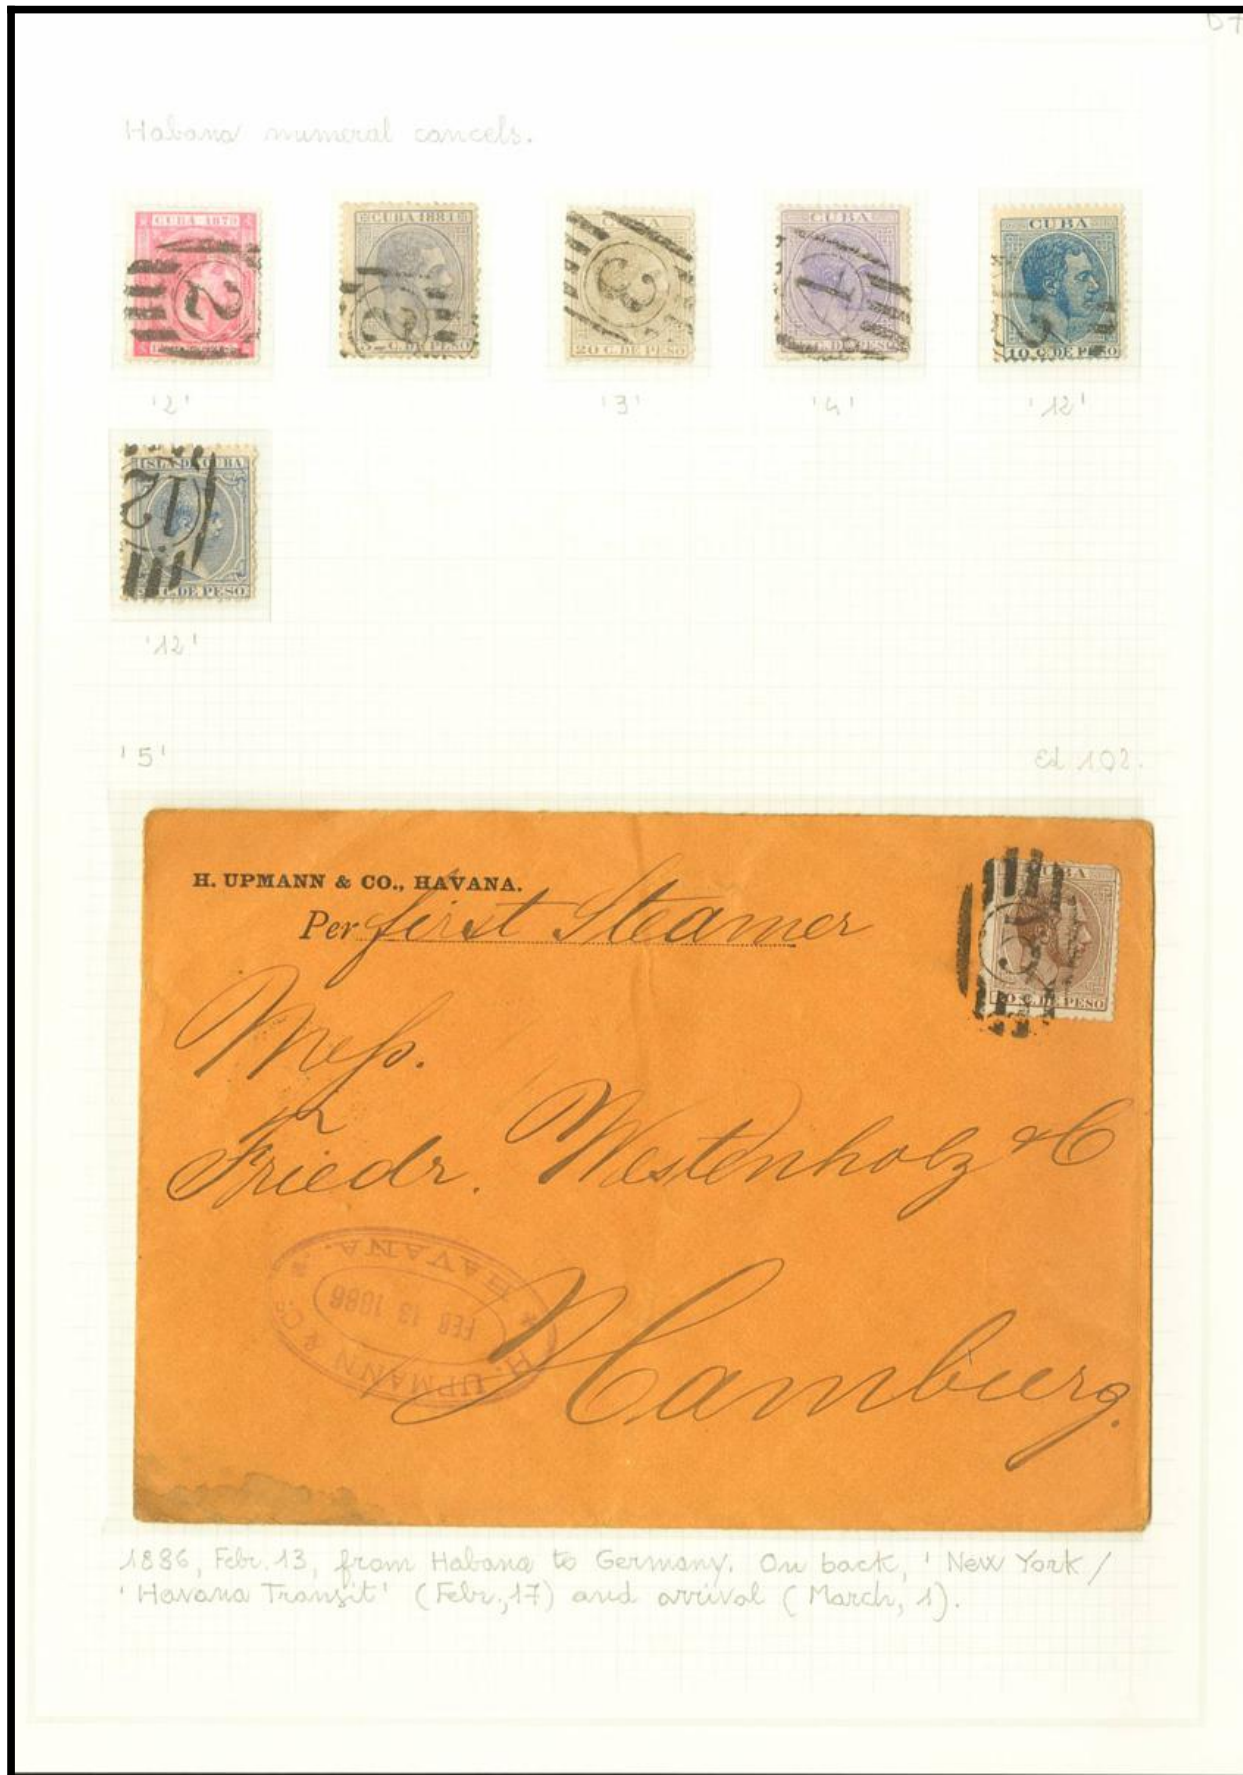 Habana numeral cancels.
CUBA 1879
CUBA 1881
CUBA
CUBA
CUBA
2
2
3
1
12
C. DE PESO
20 C. DE PESO
C. DE PESO
10 C. DE PESO
'2'
'3'
'4'
'12'
ISLA DE CUBA
12
C. DE PESO
'12'
'5'
Ed. 102.
H. UPMANN & CO., HAVANA.
Per first Steamer
CUBA
5
C. DE PESO
Mess.
Friedr. Westenholz & C
Hamburg.
H. UPMANN & Co. * HAVANA. *
FEB 13 1886
1886, Febr. 13, from Habana to Germany. On back, 'New York /
'Havana Transit' (Febr, 17) and arrival (March, 1).